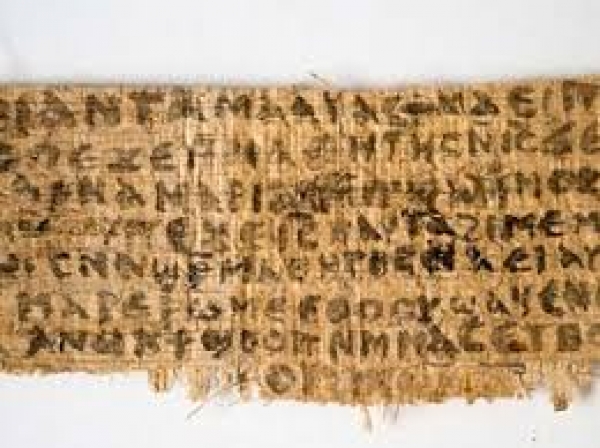 ⲉⲓⲁⲛⲧⲁⲙⲁⲁⲩⲁⲥϯⲛⲁⲉⲓⲡ
ⲡⲉϫⲉⲙⲙⲁⲑⲏⲧⲏⲥⲛⲓⲥϫⲉ
ⲁⲣⲛⲁⲙⲁⲣⲓⲁⲙⲙⲡϣⲁⲙⲙⲟ
ⲡⲉϫⲉⲓⲥⲛⲁⲩⲧⲁϩⲓⲙⲉⲙ
ⲛⲁϣⲣⲙⲁⲑⲏⲧⲏⲥⲛⲁⲉⲓⲁⲩ
ⲙⲁⲣⲉⲣⲱⲙⲉⲉⲑⲟⲟⲩϣⲁϥⲉⲛⲉ
ⲁⲛⲟⲕϯϣⲟⲟⲡⲛⲙⲙⲁⲥⲉⲧⲃⲉ